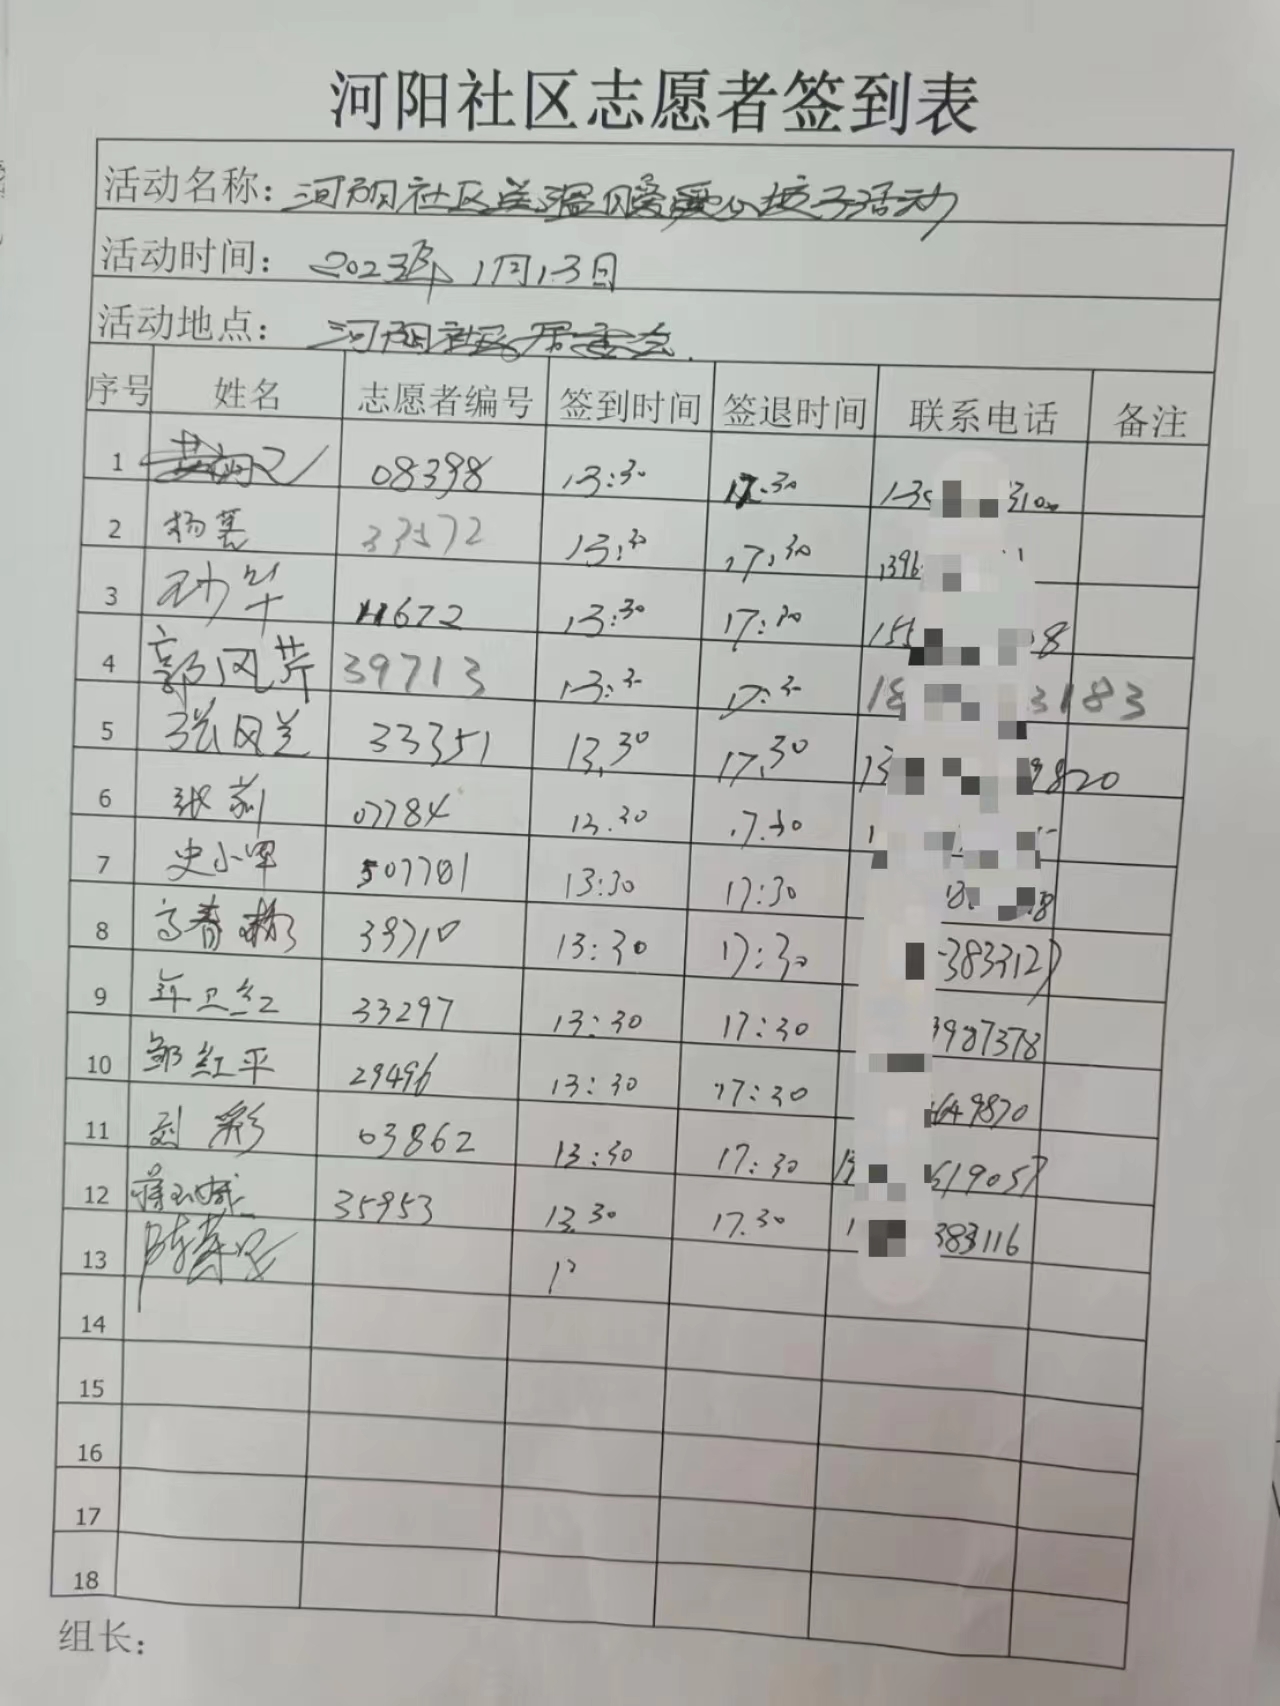 河阳社区志愿者签到表
活动名称：河阳社区送温暖爱心饺子活动
活动时间：2023年1月13日
活动地点：河阳社区居委会
序号 姓名 志愿者编号 签到时间 签退时间 联系电话 备注
1 08398 13:30 17:30
2 杨 33572 13:30 17:30
3 11672 13:30 17:30
4 郭风芹 39713 13:3 17:3 3183
5 张风兰 33351 13.30 17.30 9820
6 张莉 07784 13.30 17.30
7 史小 507701 13:30 17:30
8 高春 39710 13:30 17:30
9 年卫红 33297 13:30 17:30 3907378
10 邹红平 29496 13:30 17:30 649870
11 刘彩 03862 13:30 17:30 619057
12 35953 13.30 17.30 383116
13 陈
14
15
16
17
18
组长：